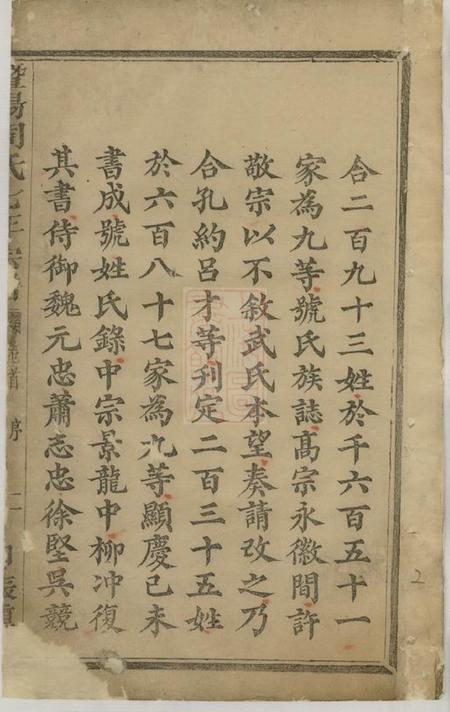 合二百九十三姓於千六百五十一
家為九等號氏族誌高宗永徽間許
敬宗以不敘武氏本望奏請改之乃
合孔約呂才等刋定二百三十五姓
於六百八十七家為九等顯慶己未
書成號姓氏錄中宗景龍中柳冲復
其書侍御魏元忠蕭志忠徐堅吳競
周氏
首 序
2